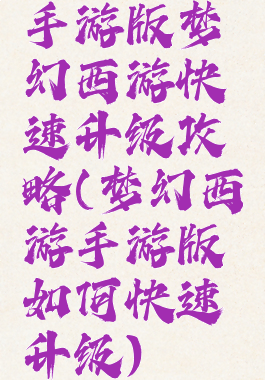 手游版梦
幻西游快
速升级攻
略(梦幻西
游手游版
如何快速
升级)